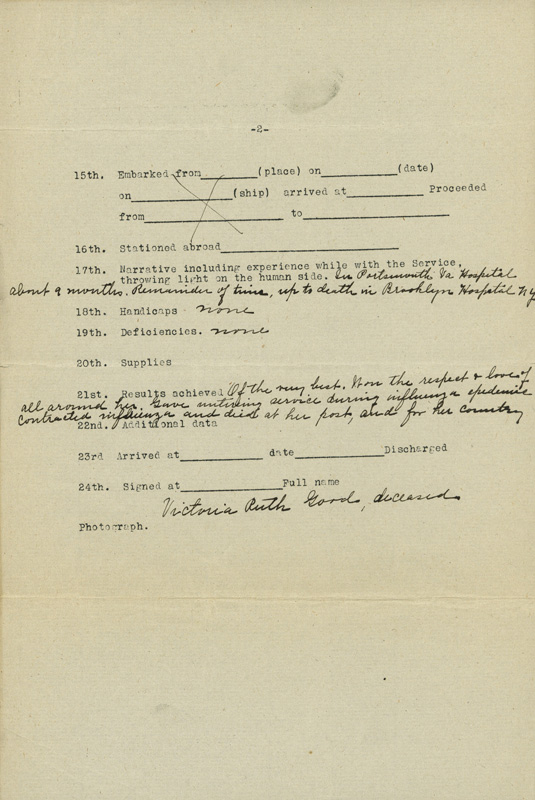 -2-
15th. Embarked from________(place) on________(date)
on____________(ship) arrived at_________ Proceeded
from________________ to_________________
16th. Stationed abroad_____________________
17th. Narrative including experience while with the Service,
throwing light on the human side. In Portsmouth Va Hospital
about 9 months. Remainder of time, up to death in Brooklyn Hospital N.Y.
18th. Handicaps none
19th. Deficiencies. none
20th. Supplies
21st. Results achieved Of the very best. Won the respect & love of
all around her. Gave untiring service during influenza epidemic
contracted influenza and died at her post, and for her country
22nd. Additional data
23rd Arrived at__________ date__________Discharged
24th. Signed at____________Full name
Victoria Ruth Good, deceased
Photograph.